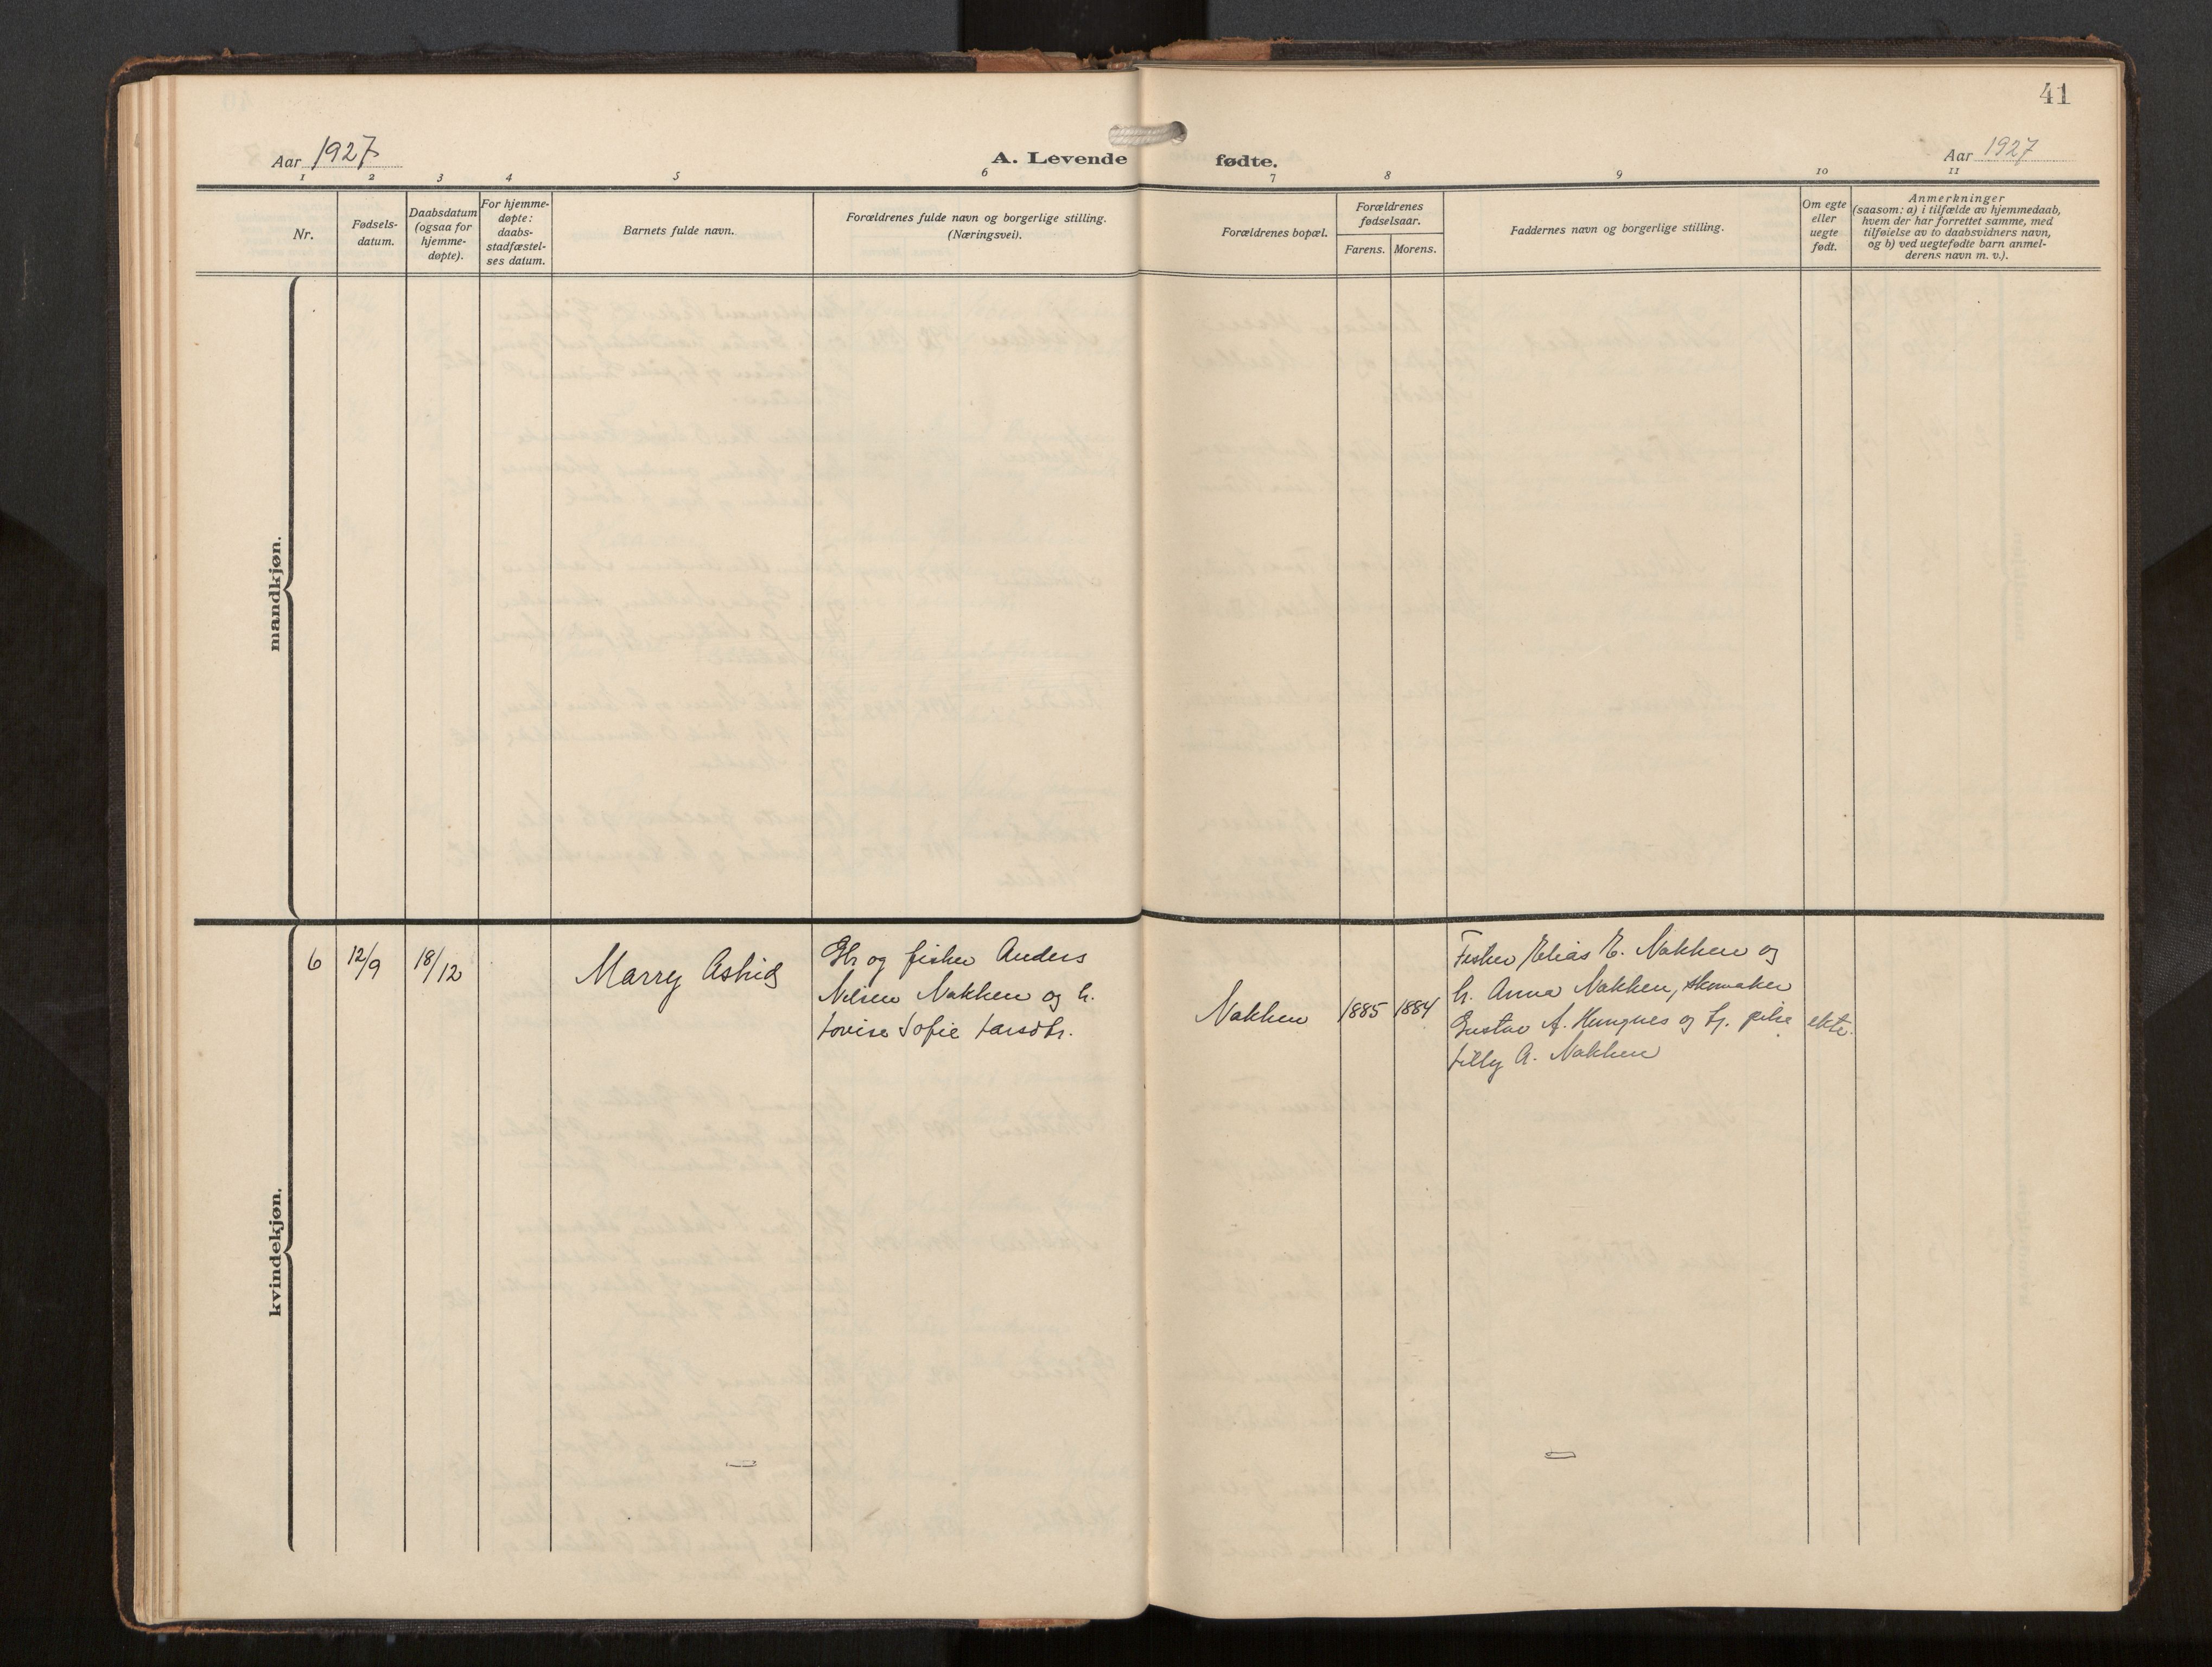 41
Aar 1927
A. Levende fødte.
Aar 1927
1 2 3 4 5 6 7 8 9 10 11
Nr.
Fødsels-
datum.
Daabsdatum
(ogsaa for
hjemme-
døpte).
For hjemme-
døpte:
daabs-
stadfæstel-
ses datum.
Barnets fulde navn.
Forældrenes fulde navn og borgerlige stilling.
(Næringsvei).
Forældrenes bopæl.
Forældrenes
fødselsaar.
Farens. Morens.
Faddernes navn og borgerlige stilling.
Om egte
eller
uegte
født.
Anmerkninger
(saasom: a) i tilfælde av hjemmedaab,
hvem der har forrettet samme, med
tilføielse av to daabsvidners navn,
og b) ved uegtefødte barn anmel-
derens navn m. v.).
mandkjøn.
kvindekjøn.
6
12/9
18/12
Marry Astrid
Gbr og fisker Anders
Nilsen Nakken og h.
Lovise Sofie Larsdtr.
Nakken
1885
1884
Fisker Elias E. Nakken og
h. Anna Nakken, skomaker
Gustav A. Hungnes og Ly. pike
Lilly A. Nakken
ekte.